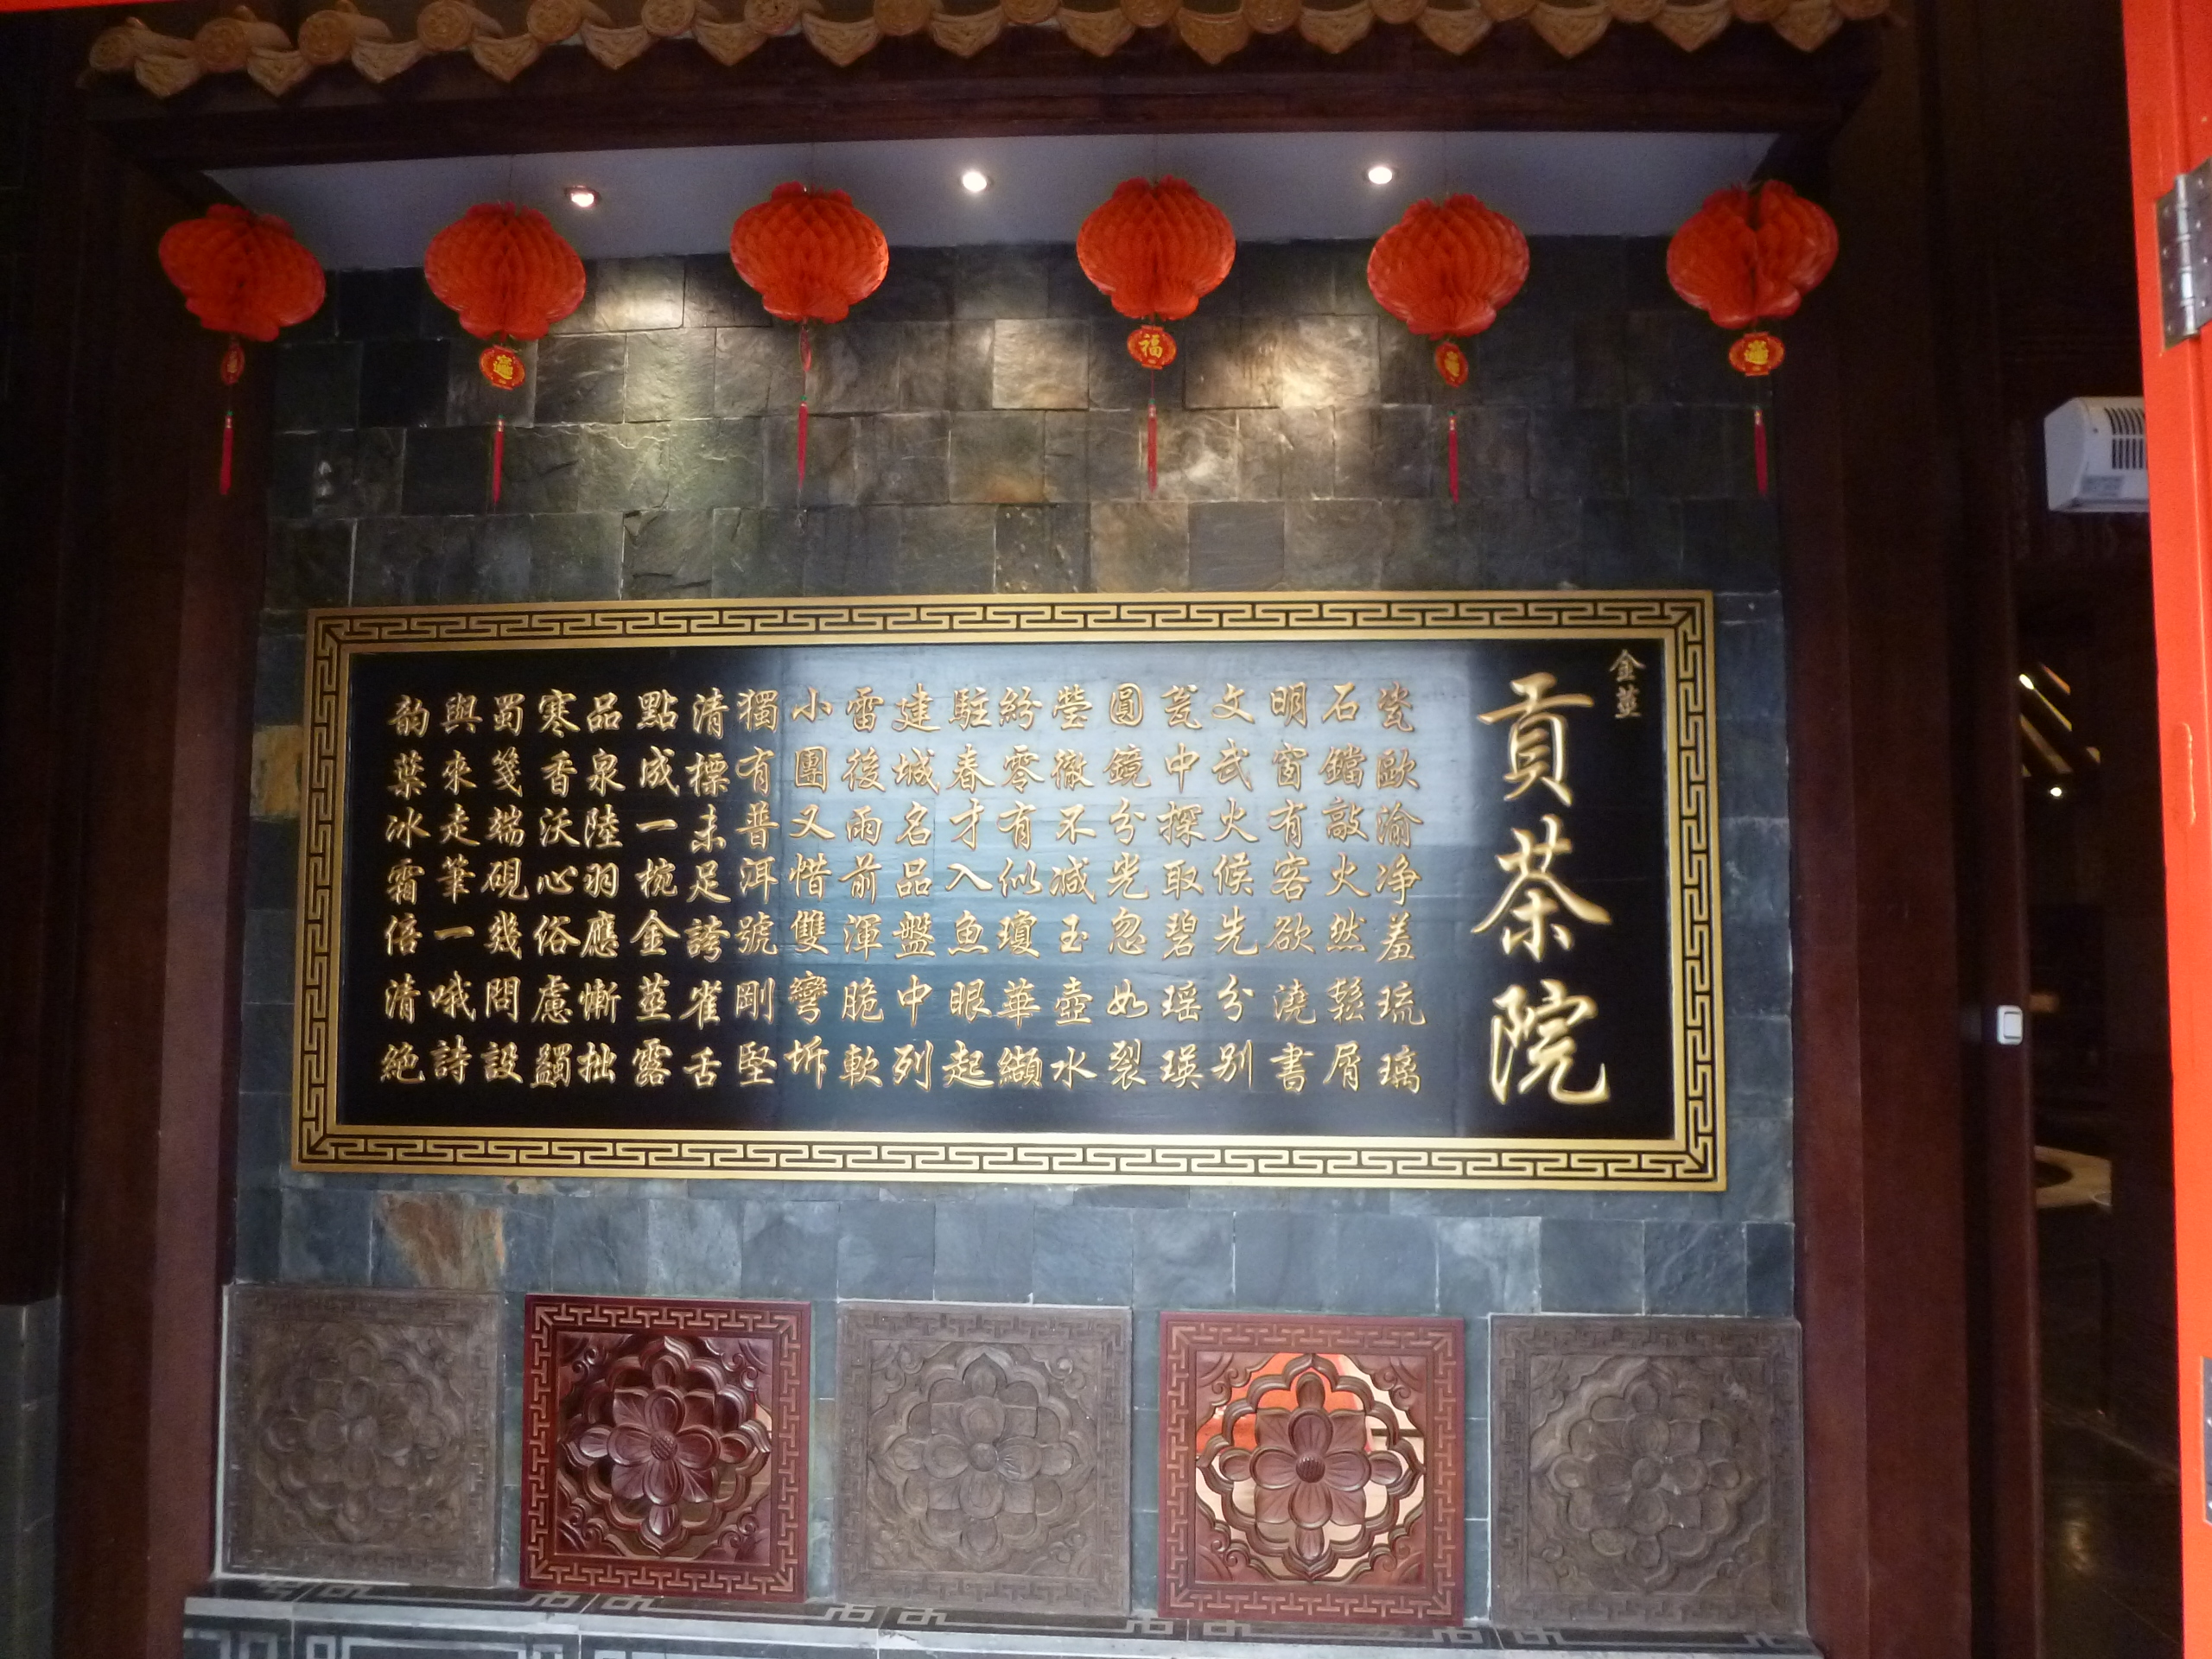 金莖
貢茶院
瓷歐渝净羞琉璃
石鐺敲火然鬆屑
明窗有客欲澆書
文武火候先分别
瓮中探取碧瑶瑛
圓鏡分光忽如裂
瑩徹不减玉壺水
紛零有似瓊華纈
駐春才入魚眼起
建城名品盤中列
雷後雨前渾脆軟
小團又惜雙彎坼
獨有普洱號剛堅
清標未足誇雀舌
點成一椀金莖露
品泉陸羽應慚拙
寒香沃心俗慮蠲
蜀箋端硯幾問設
與來走筆一哦詩
韵葉冰霜倍清絶
福